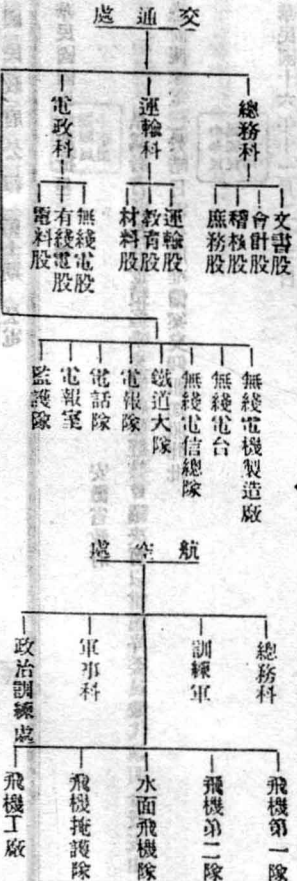 交通處
總務科
運輸科
電政科
文書股
會計股
稽核股
庶務股
運輸股
教育股
材料股
無綫電股
有綫電股
電料股
無綫電機製造廠
無綫電台
無綫電信總隊
鐵道大隊
電報隊
電話隊
電報室
監護隊
航空處
總務科
訓練軍
軍事科
政治訓練處
飛機第一隊
飛機第二隊
水面飛機隊
飛機掩護隊
飛機工廠